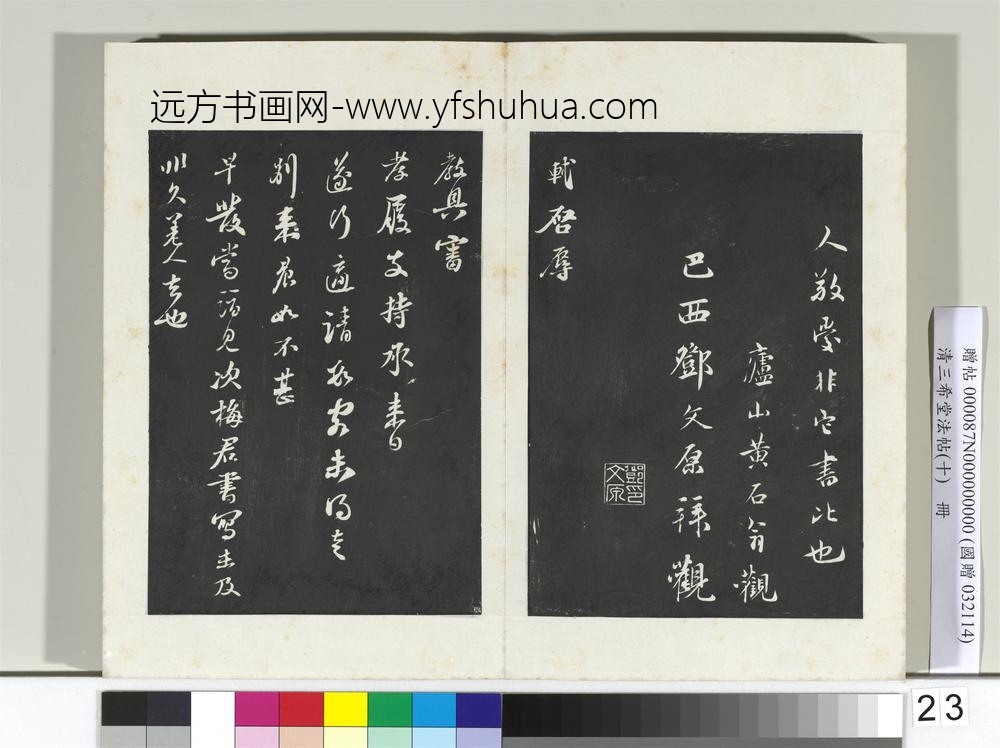 远方书画网-www.yfshuhua.com
人敬愛非它書比也
廬山黄石翁觀
巴西鄧文原拜觀
鄧文原印
軾啓辱
教具審
孝履支持承來日
遂行適請數客未得走
別來晨如不甚
早發當詣見次梅君書寫未及
非久差人去也
贈帖 000087N000000000 (國贈 032114)
清三希堂法帖(十) 冊
23